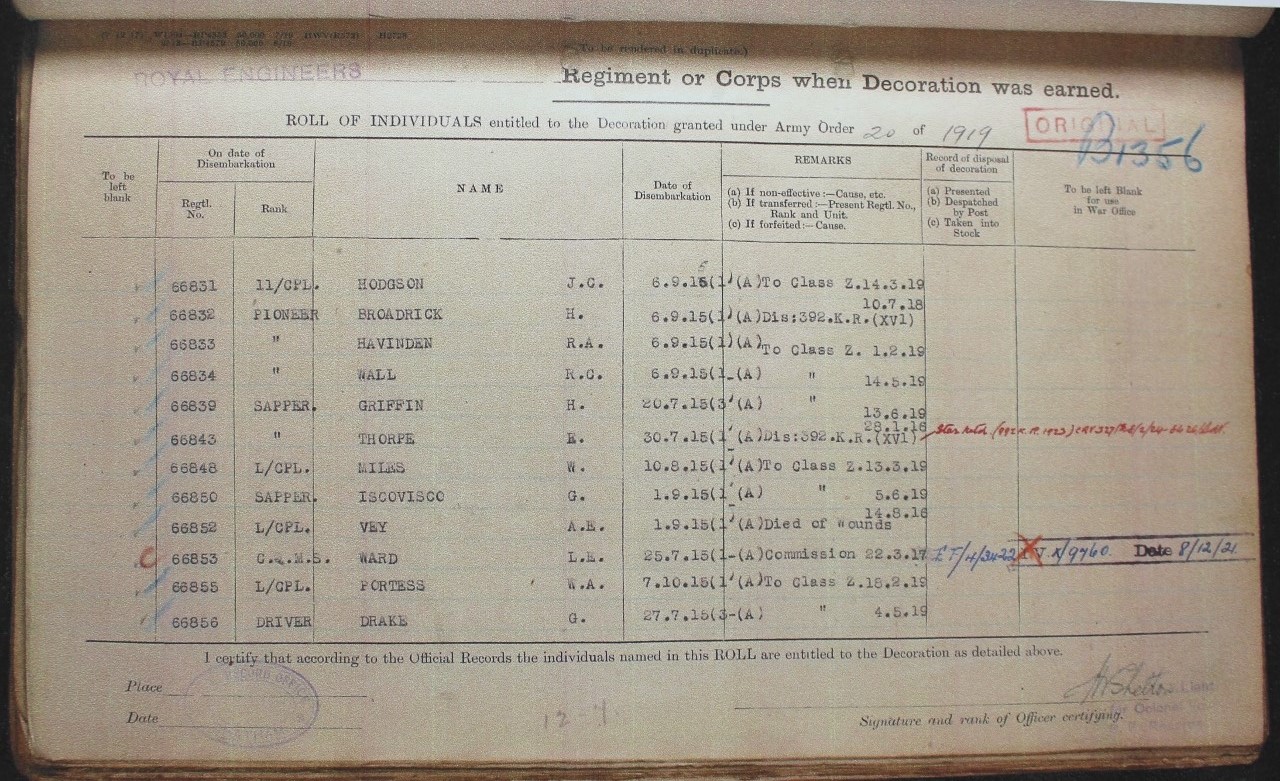 (To be rendered in duplicate.)
ROYAL ENGINEERS Regiment or Corps when Decoration was earned.
ROLL OF INDIVIDUALS entitled to the Decoration granted under Army Order 20 of 1919
ORIGINAL
B1356
To be left blank
On date of Disembarkation
Regtl. No.
Rank
NAME
Date of Disembarkation
REMARKS
(a) If non-effective :—Cause, etc.
(b) If transferred :—Present Regtl. No., Rank and Unit.
(c) If forfeited :—Cause.
Record of disposal of decoration
(a) Presented
(b) Despatched by Post
(c) Taken into Stock
To be left Blank for use in War Office
66831 11/CPL. HODGSON J.C. 6.9.15(1 (A)To Class Z.14.3.19
66832 PIONEER BROADRICK H. 6.9.15(1)(A)Dis:392.K.R.(XVI) 10.7.18
66833 " HAVINDEN R.A. 6.9.15(1)(A)To Class Z. 1.2.19
66834 " WALL R.C. 6.9.15(1-(A) " 14.5.19
66839 SAPPER. GRIFFIN H. 20.7.15(3'(A) " 13.6.19
66843 " THORPE E. 30.7.15(1'(A)Dis:392.K.R.(XVI) 28.1.16
66848 L/CPL. MILES W. 10.8.15(1'(A)To Class Z.13.3.19
66850 SAPPER. ISCOVISCO G. 1.9.15(1'(A) " 5.6.19
66852 L/CPL. VEY A.E. 1.9.15(1'(A)Died of Wounds 14.8.16
66853 C.Q.M.S. WARD L.E. 25.7.15(1-(A)Commission 22.3.17 EF/4/3422 I.V.X/9760. Date 8/12/21
66855 L/CPL. PORTESS W.A. 7.10.15(1'(A)To Class Z.18.2.19
66856 DRIVER DRAKE G. 27.7.15(3-(A) " 4.5.19
I certify that according to the Official Records the individuals named in this ROLL are entitled to the Decoration as detailed above.
Place
Date
RECORD OFFICE
Signature and rank of Officer certifying.